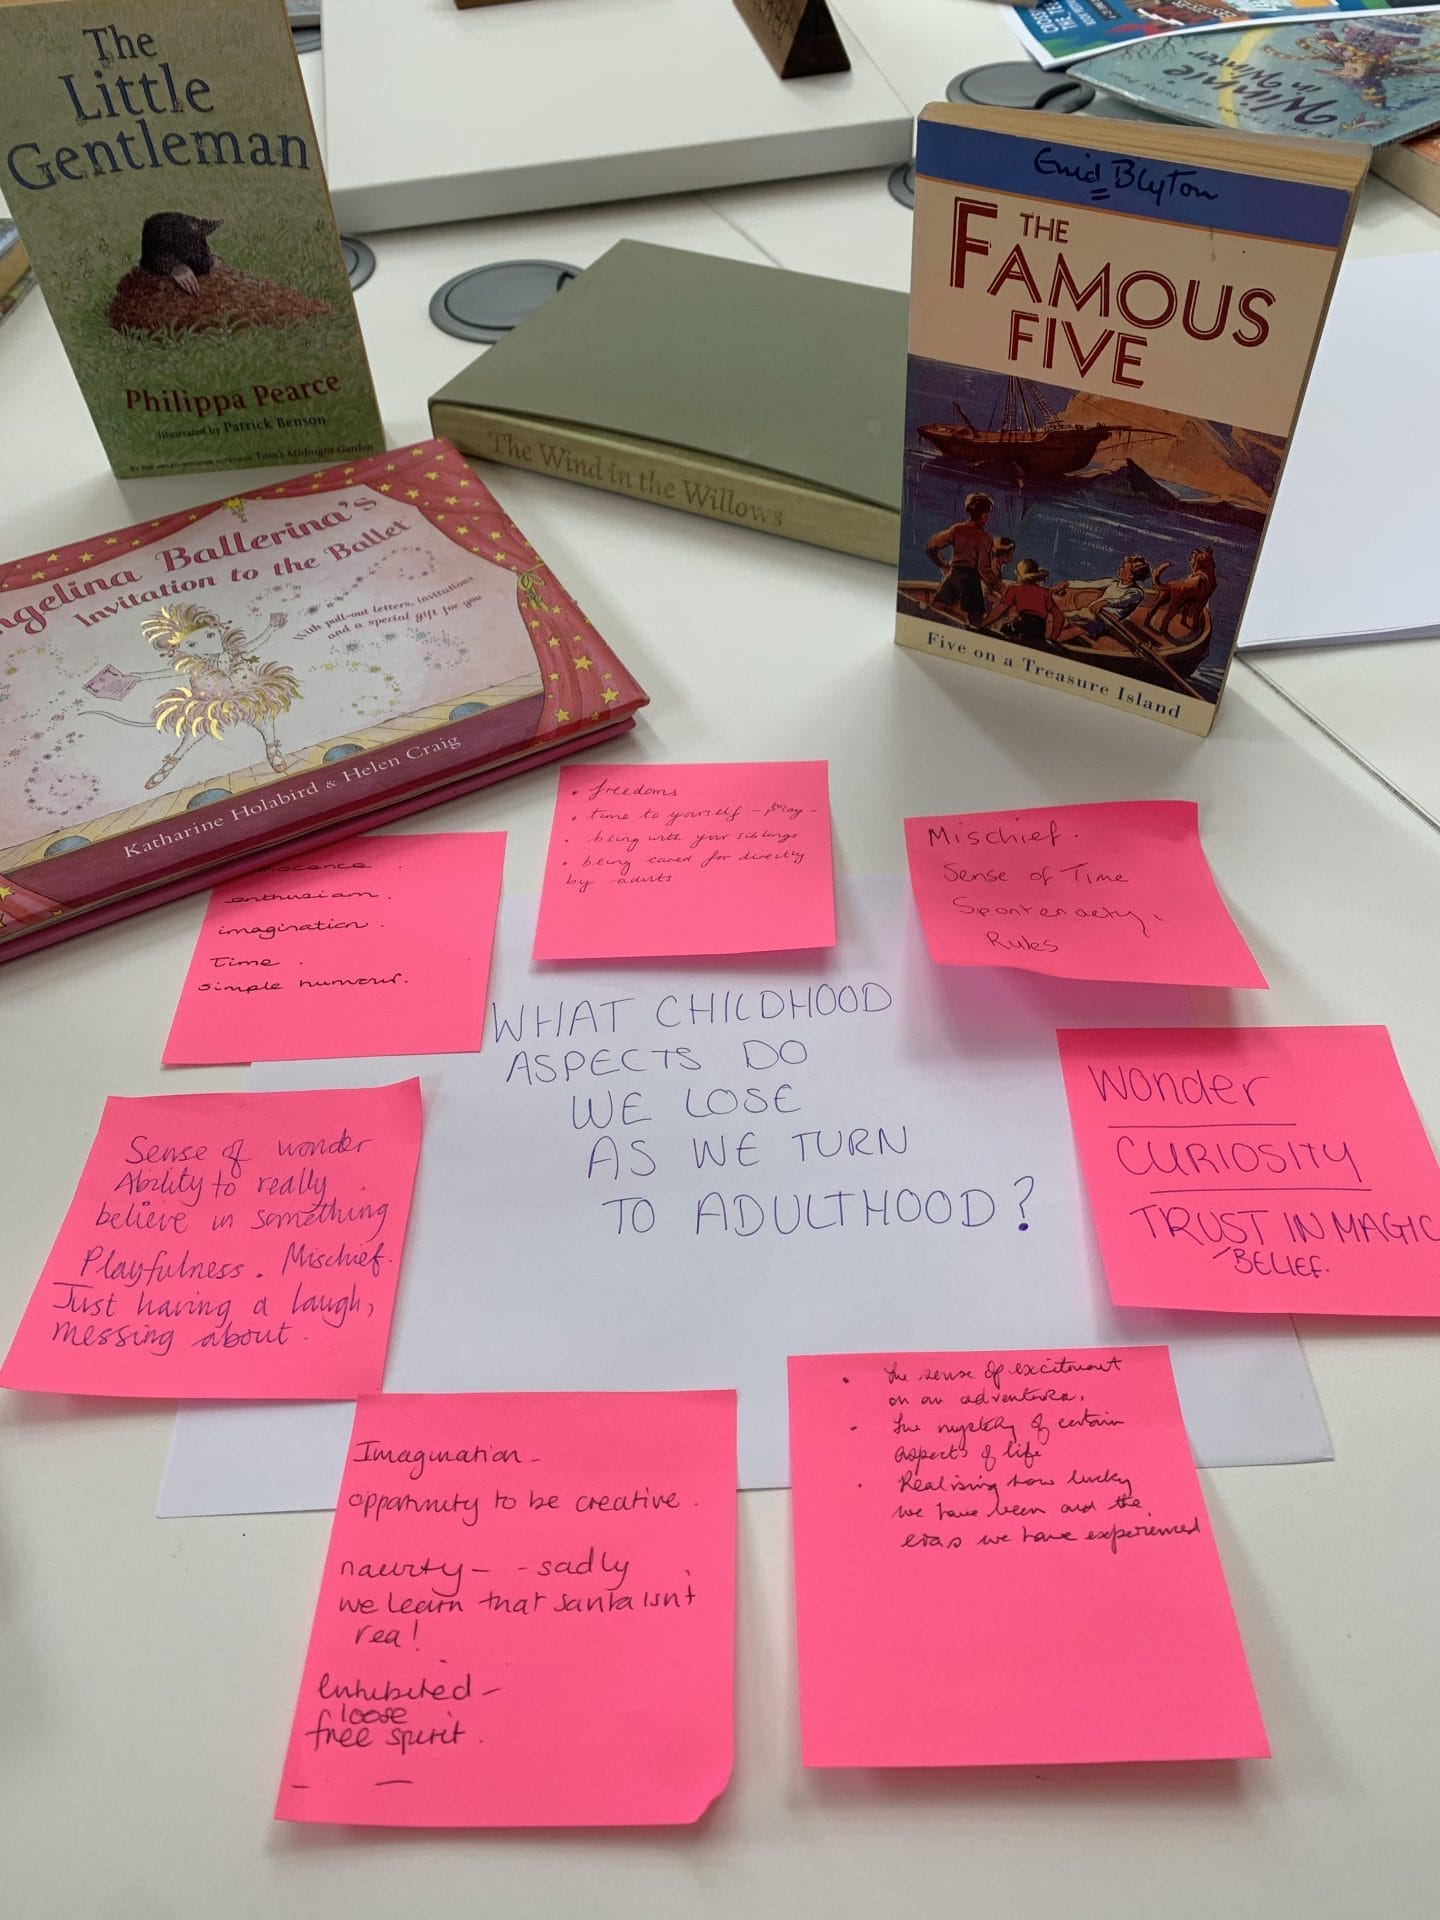 The
Little
Gentleman
Philippa Pearce
Illustrated by Patrick Benson
BY THE AWARD-WINNING AUTHOR OF Tom's Midnight Garden
CROSS
THE TEE
Winnie
in Winter
Valerie Thomas and Korky Paul
Enid Blyton
THE
FAMOUS
FIVE
Five on a Treasure Island
The Wind in the Willows
ngelina Ballerina's
Invitation to the Ballet
With pull-out letters, invitations
and a special gift for you
Katharine Holabird & Helen Craig
• freedoms
• time to yourself - play -
• being with your siblings
• being cared for directly
by adults
Mischief.
Sense of Time
Rules
nocence.
enthusiam.
imagination.
Time.
simple humour.
WHAT CHILDHOOD
ASPECTS DO
WE LOSE
AS WE TURN
TO ADULTHOOD?
Wonder
CURIOSITY
TRUST IN MAGIC
BELIEF.
Sense of wonder
Ability to really
believe in something
Playfulness. Mischief.
Just having a laugh,
messing about.
Imagination -
opportunity to be creative.
- sadly
we learn that santa isn't
real!
loose
free spirit.
• The sense of excitment
on an adventure.
• The mystery of certain
aspects of life
• Realising how lucky
we have been and the
eras we have experienced